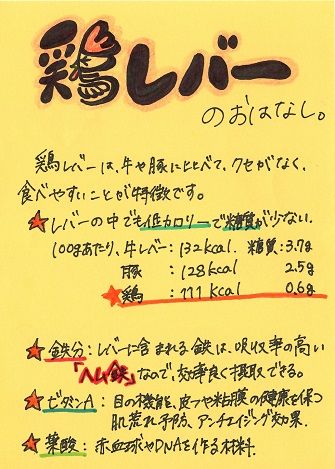 鶏レバー
のおはなし。
鶏レバーは、牛や豚に比べて、クセがなく、
食べやすいことが特徴です。
★レバーの中でも低カロリーで糖質が少ない。
100gあたり、牛レバー:132kcal 糖質:3.7g
豚 :128kcal 2.5g
★鶏 :111kcal 0.6g
★鉄分:レバーに含まれる鉄は、吸収率の高い
「ヘム鉄」なので、効率良く摂取できる。
★ビタミンA:目の機能、皮フや粘膜の健康を保つ
肌荒れ予防、アンチエイジング効果。
★葉酸:赤血球やDNAを作る材料。